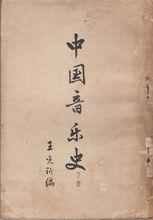 中国音乐史
下册
王光祈编